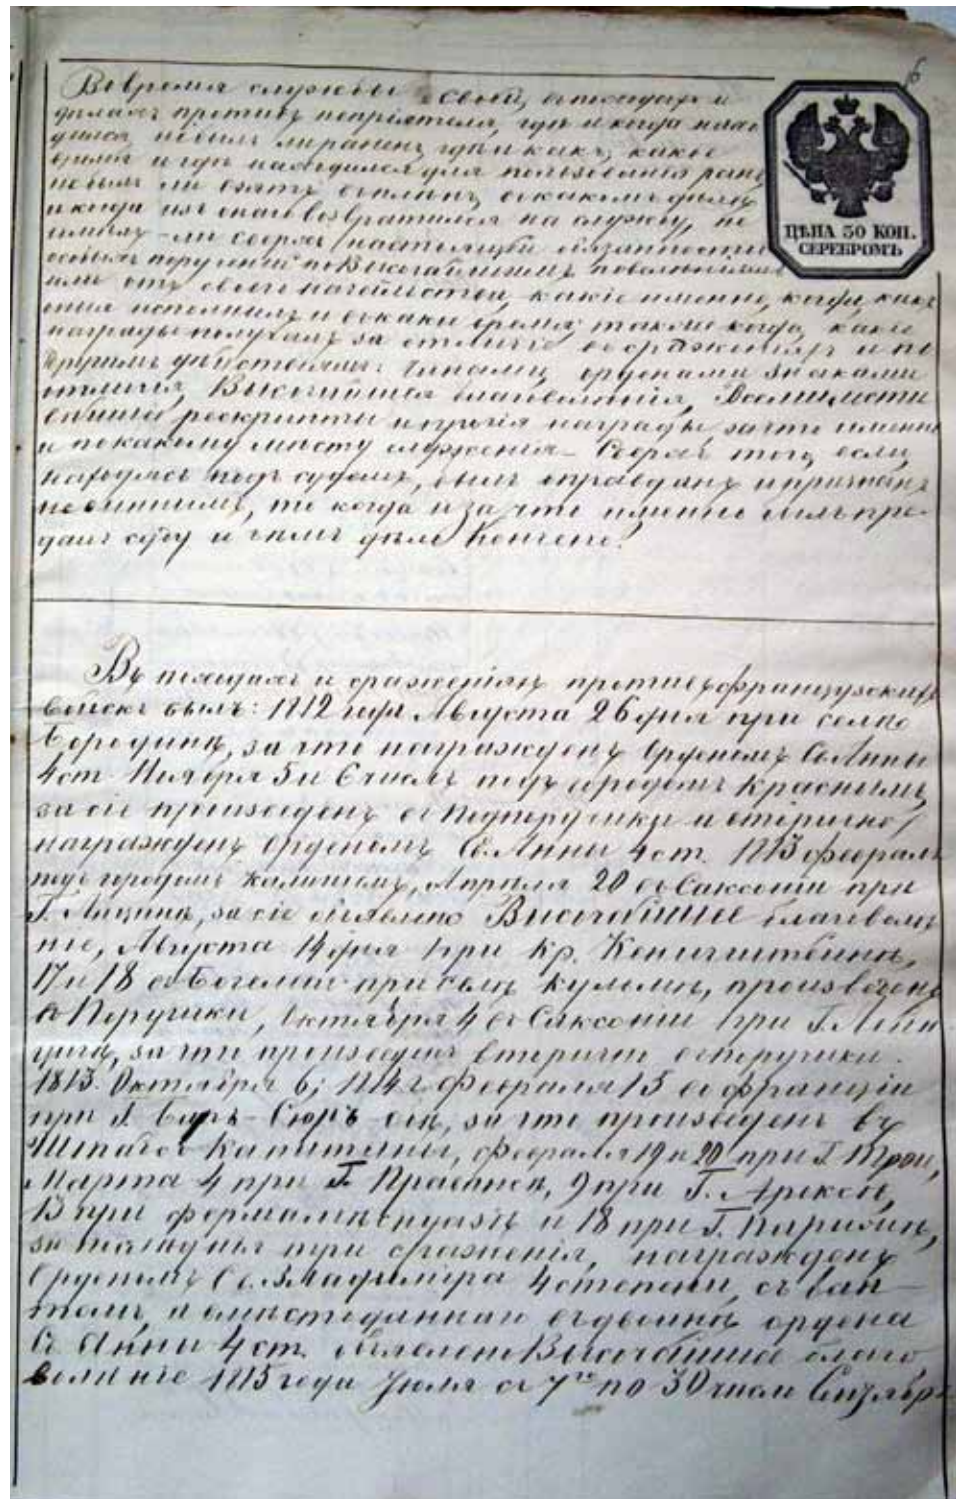 6
Во время службы своей, въ походахъ и
дѣлахъ противъ непріятеля, гдѣ и когда нахо-
дился, небылъ ли раненъ, гдѣ и какъ, какое
время и гдѣ находился для пользованія ранъ,
небылъ ли взятъ въ плѣнъ, въ какомъ дѣлѣ
и когда изъ онаго возвратился на службу, не
имѣлъ-ли сверхъ настоящей обязанности
особыхъ порученій по Высочайшимъ повелѣніямъ
или отъ своего начальства, какіе именно, когда, какъ
оныя исполнилъ и въ какое время; также когда, какіе
награды получалъ за отличіе въ сраженіяхъ и по
другимъ дѣйствіямъ: чинами, орденами знаками
отличія, Высочайшія благоволѣнія, Всемилости
вѣйшіе рескрипты и прочія награды, за что именно
и по какому мѣсту служенія – Сверхъ того, если
находясь подъ судомъ, былъ оправданъ и признанъ
невиннымъ, то когда и за что именно былъ пре-
данъ суду и чѣмъ дѣло кончено.
ЦѢНА 30 КОП.
СЕРЕБРОМЪ
Въ походахъ и сраженіяхъ противъ французскихъ
войскъ былъ: 1812 года Августа 26 дня при селѣ
Бородинѣ, за что награжденъ Орденомъ Св. Анны
4 ст. Ноября 5 и 6 чиселъ подъ городомъ Краснымъ,
за сіе произведенъ въ Подпоручики и вторично
награжденъ орденомъ Св. Анны 4 ст. 1813 февраля
подъ городомъ Калишемъ, Апрѣля 20 въ Саксоніи при
Г. Люценѣ, за сіе объявлено Высочайшее благоволѣ
ніе, Августа 14 дня при кр. Кенигштейнѣ,
17 и 18 въ Богеміи при селѣ Кульмѣ, произведенъ
въ Поручики, Октября 4 въ Саксоніи при Г. Лейп
цигѣ, за что произведенъ вторично въ поручики.
1813 Октября 6; 1814 г. февраля 15 во франціи
при Г. Баръ-Сюръ-Объ, за что произведенъ въ
Штабсъ Капитаны, февраля 19 и 20 при Г. Троа,
Марта 4 при Г. 9 при Г. Арсисѣ,
13 при и 18 при Г. Парижѣ,
за послѣднія три сраженія, награжденъ
Орденомъ Св. Владиміра 4 степени, съ бан-
томъ, и вмѣсто даннаго вдвойнѣ ордена
Св. Анны 4 ст. объявлено Высочайшее благо
воленіе 1815 года Іюля съ 7го по 30 число Сентября